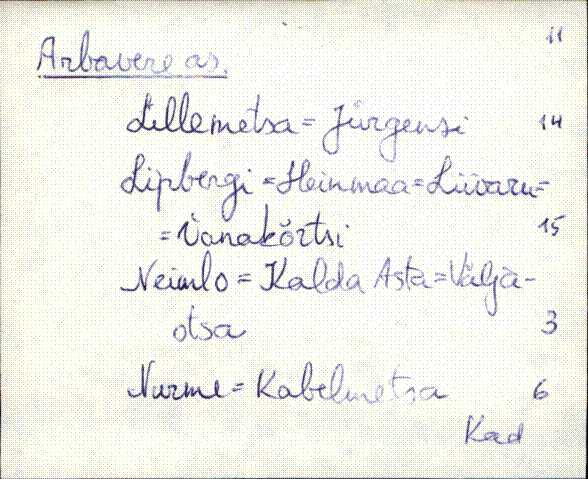 11
Arbavere as.
Lillemetsa = Jürgensi 14
Lipbergi = Heinmaa = Liivaru =
= Vanakõrtsi 15
Neimlo = Kalda Asta = Välja-
otsa 3
Nurme = Kabelmetsa 6
Kad